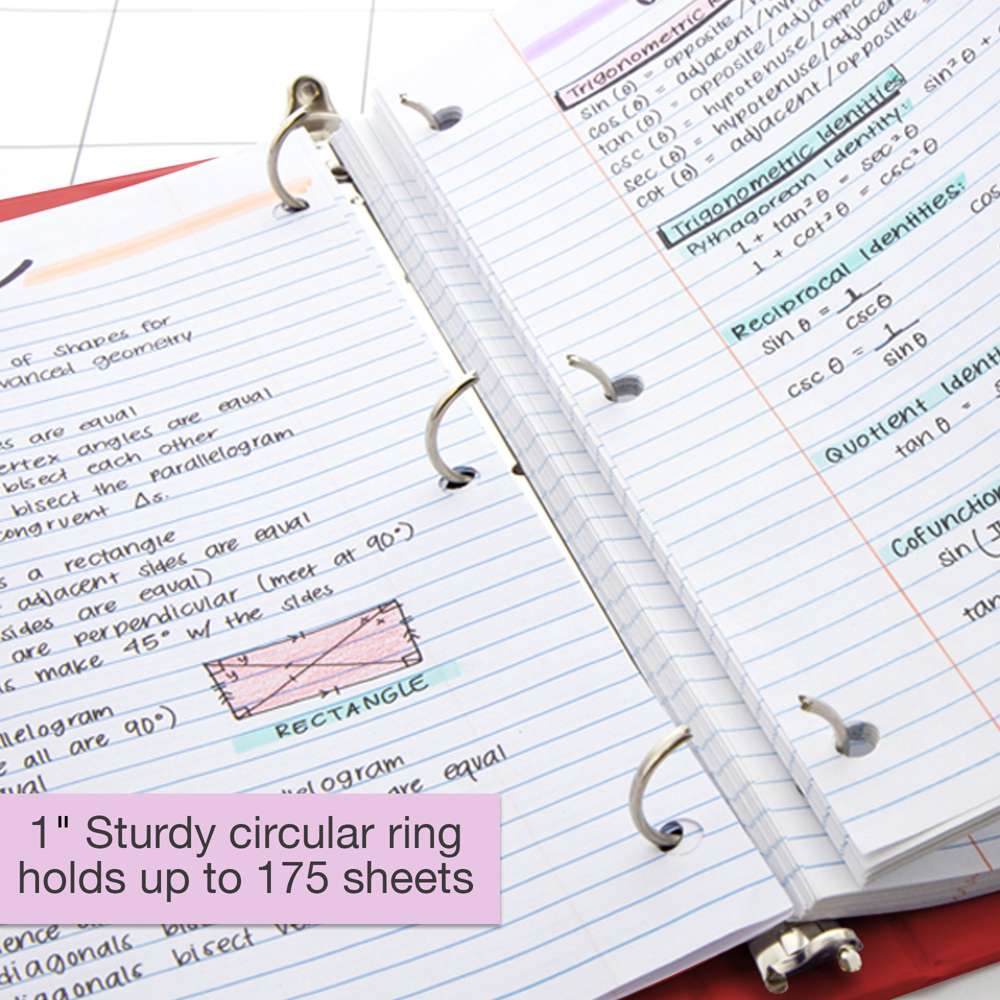 of shapes for
advanced geometry
es are equal
vertex angles are equal
bisect each other
bisect the parallelogram
congruent Δs.
s a rectangle
adjacent sides are equal
sides are equal)
are perpendicular (meet at 90°)
make 45° w/ the sides
y y x x
RECTANGLE
llelogram
e all are 90°)
ual
lelogram
are equal
1" Sturdy circular ring
holds up to 175 sheets
diagonals
diagonals bisect
Trigonometric
sin (θ) = opposite/hy
cos (θ) = adjacent/hyp
tan (θ) = opposite/adja
csc (θ) = hypotenuse/oppo
sec (θ) = hypotenuse/adjacen
cot (θ) = adjacent/opposite
Trigonometric Identities
Pythagorean Identity: sin²θ +
1 + tan²θ = sec²θ
1 + cot²θ = csc²θ
Reciprocal Identities:
sin θ = 1/cscθ cos
csc θ = 1/sinθ
Quotient Identi
tan θ =
Cofunction
sin(
tan